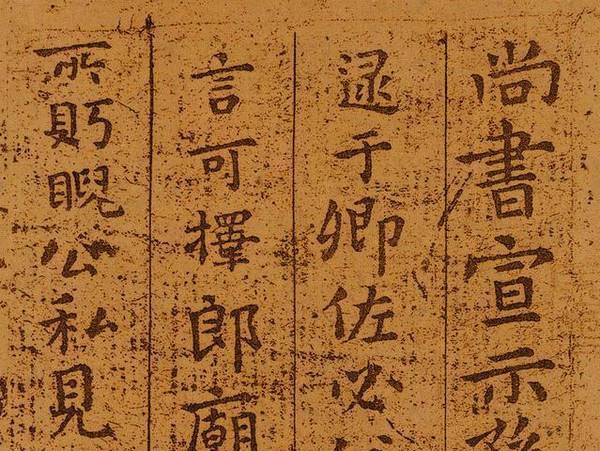 尚書宣示
逮于卿佐必
言可擇郎廟
所盱睨公私見